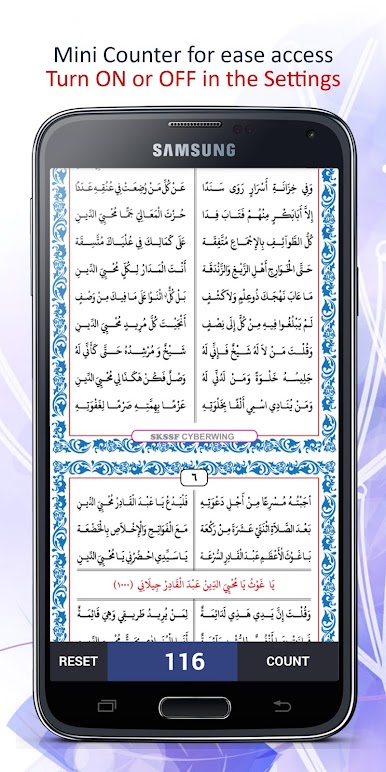 Mini Counter for ease access
Turn ON or OFF in the Settings
SAMSUNG
وَفِي خِزَانَةِ أَسْرَارٍ رَوَى سَنَدًا عَنْ كُلِّ مَنْ وُضِعَتْ فِي عُنْقِهِ عَدَدًا
إِلاَّ أَبَابَكْرٍ مِنْهُمْ فَتَابَ فِدَا حُزْتَ الْمَعَالِيَ جَمًّا مُحْيِيَ الدِّينِ
كُلُّ الطَّوَآئِفِ بِالْإِجْمَاعِ مُتَّفِقَهْ عَلَى كَمَالِكَ فِي عُلْيَاكَ مُتَّسِقَهْ
حَتَّى الْخَوَارِجِ أَهْلِ الزَّيْغِ وَالزَّنْدَقَهْ أَنْتَ الْمَدَارُ لِكُلٍّ مُحْيِيَ الدِّينِ
مَا عَابَ نَهْجَكَ ذُوعِلْمٍ وَلاَكَشْفٍ بَلْ كُلٌّ اثْنَوْا عَلَى مَا فِيكَ مِنْ وَصْفٍ
لَمْ يَبْلُغُوا فِيكَ مِنْ كُلٍّ إِلَى نِصْفٍ أَنْجَبْتَ كُلَّ مُرِيدٍ مُحْيِيَ الدِّينِ
وَقُلْتَ مَنْ لاَ لَهُ شَيْخٌ فَإِنِّي لَهُ شَيْخٌ وَ مُرْشِدُهُ حَتَّى كَأَنِّي لَهُ
جَلِيسُهُ خَلْوَةً وَمِنْ لَدُنِّي لَهُ وَصْلٌ فَكُنْ هَكَذَا لِي مُحْيِيَ الدِّينِ
وَمَنْ يُنَادِي اسْمِي أَلْفًا بِخَلْوَتِهِ عَزْمًا بِهِمَّتِهِ صَرْمًا لِغَفْوَتِهِ
SKSSF CYBERWING
٦
أَجَبْتُهُ مُسْرِعًا مِنْ أَجْلِ دَعْوَتِهِ فَلْيَدْعُ يَا عَبْدَ الْقَادِرْ مُحْيِيَ الدِّينِ
بَعْدَ الصَّلاَةِ اثْنَتَيْ عَشْرَةَ مِنْ رَكْعَهْ مَعَ الْفَوَاتِحِ وَالْإِخْلاَصِ بِالْخَضْعَهْ
يَا غَوْثُ الْأَعْظَمْ عَبْدَ الْقَادِرِ السُّرْعَهْ يَا سَيِّدِي احْضُرْنِي يَا مُحْيِيَ الدِّينِ
يَا غَوْثُ يَا مُحْيِيَ الدِّينِ عَبْدَ الْقَادِرْ جِيلاَنِي (١٠٠٠)
وَقُلْتَ إِنَّ يَدِي هَذِي لَدَائِمَةٌ لِمَنْ يُرِيدُ طَرِيقِي وَهِيَ قَائِمَةٌ
RESET 116 COUNT